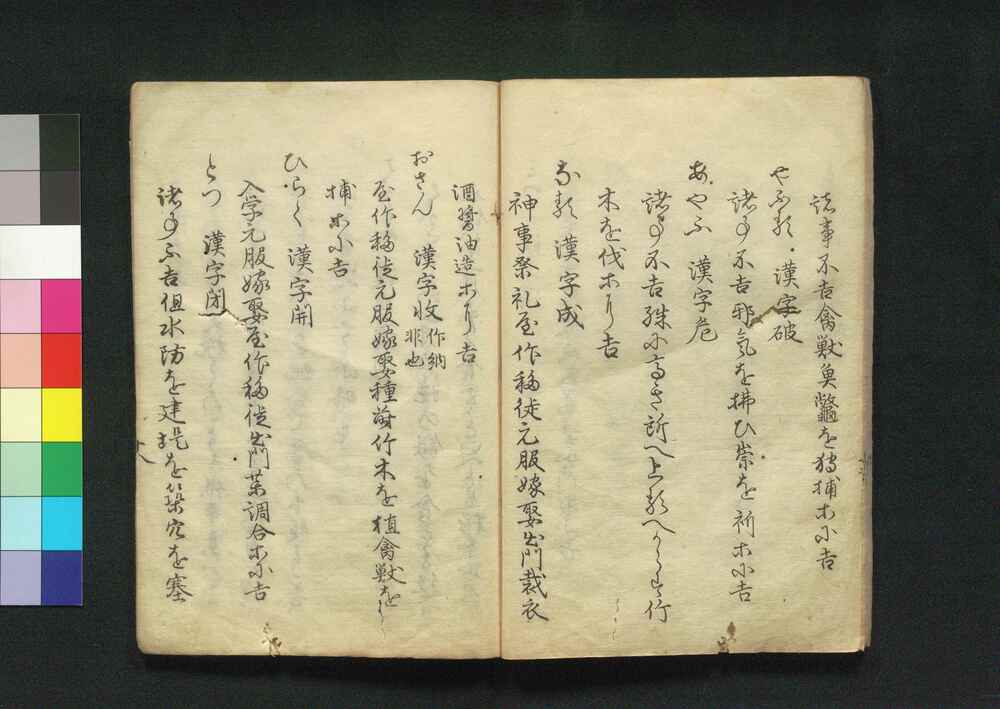 諸事不吉禽獣魚鼈を狩捕ホに吉
やふる 漢字破
諸事不吉邪気を拂ひ祟を祈ホに吉
あやふ 漢字危
諸事不吉殊に高き所へ上るへからす竹
木を伐ホハ吉
なる 漢字成
神事祭礼屋作移徙元服嫁娶出門裁衣
酒醤油造ホハ吉
おさん 漢字收 作納非也
屋作移徙元服嫁娶種蒔竹木を植禽獣を
捕ホに吉
ひらく 漢字開
入学元服嫁娶屋作移徙出門薬調合ホに吉
とつ 漢字閉
諸事不吉但水防を建堤を築穴を塞